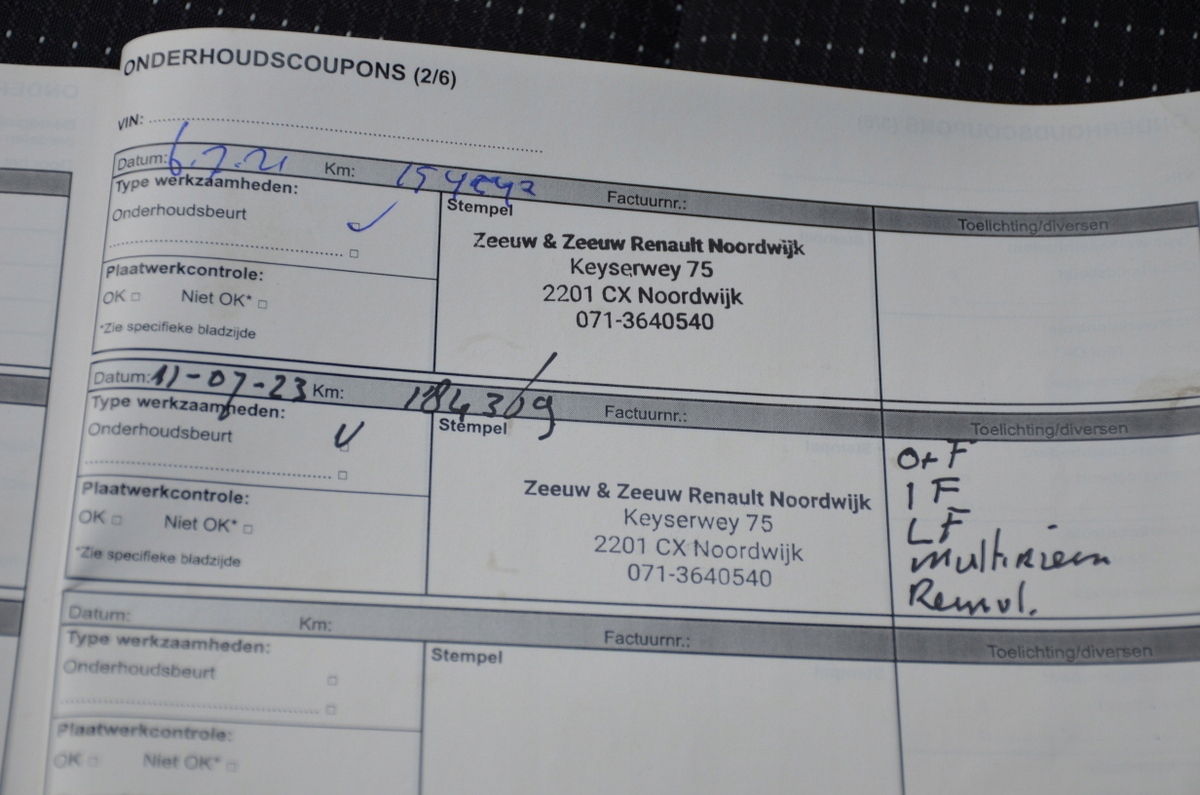 ONDERHOUDSCOUPONS (2/6)
VIN:
Datum: 6.7.21 Km: Factuurnr.:
Type werkzaamheden: Stempel Toelichting/diversen
Onderhoudsbeurt
Zeeuw & Zeeuw Renault Noordwijk
Keyserwey 75
2201 CX Noordwijk
071-3640540
Plaatwerkcontrole:
OK Niet OK*
*Zie specifieke bladzijde
Datum: 11-07-23 Km: 184319 Factuurnr.:
Type werkzaamheden: Stempel Toelichting/diversen
Onderhoudsbeurt
Zeeuw & Zeeuw Renault Noordwijk
Keyserwey 75
2201 CX Noordwijk
071-3640540
O+F
IF
LF
Multiriem
Remvl.
Plaatwerkcontrole:
OK Niet OK*
*Zie specifieke bladzijde
Datum: Km: Factuurnr.:
Type werkzaamheden: Stempel Toelichting/diversen
Onderhoudsbeurt
Plaatwerkcontrole:
OK Niet OK*